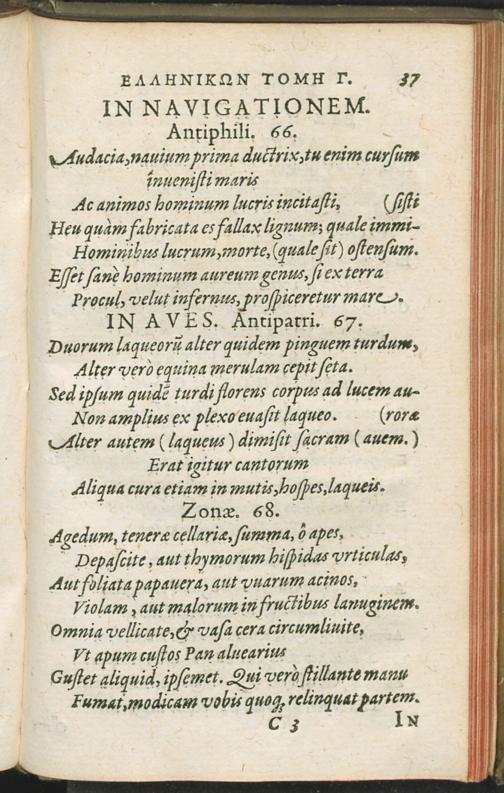 ΕΛΛΗΝΙΚΩΝ ΤΟΜΗ Γ. 37
IN NAVIGATIONEM.
Antiphili. 66.
Audacia, nauium prima ductrix, tu enim cursum
inuenisti maris
Ac animos hominum lucris incitasti, (sisti
Heu quàm fabricata es fallax lignum; quale immi-
Hominibus lucrum, morte, (quale sit) ostensum.
Esset sanè hominum aureum genus, si ex terra
Procul, velut infernus, prospiceretur mare.
IN AVES. Antipatri. 67.
Duorum laqueorũ alter quidem pinguem turdum,
Alter verò equina merulam cepit seta.
Sed ipsum quidẽ turdi florens corpus ad lucem au-
Non amplius ex plexo euasit laqueo. (roræ
Alter autem (laqueus) dimisit sacram (auem.)
Erat igitur cantorum
Aliqua cura etiam in mutis, hospes, laqueis.
Zonæ. 68.
Agedum, teneræ cellariæ, summa, ô apes,
Depascite, aut thymorum hispidas vrticulas,
Aut foliata papauera, aut vuarum acinos,
Violam, aut malorum in fructibus lanuginem.
Omnia vellicate, & vasa cera circumliuite,
Vt apum custos Pan aluearius
Gustet aliquid, ipsemet. Qui verò stillante manu
Fumat, modicam vobis quoq; relinquat partem.
C 3 IN